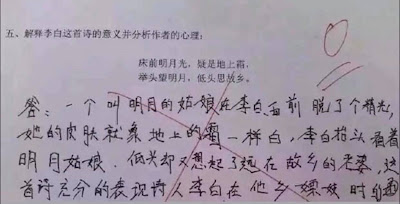 五、解释李白这首诗的意义并分析作者的心理：
床前明月光，疑是地上霜，
举头望明月，低头思故乡。
答：一个叫明月的姑娘在李白面前脱了个精光，
她的皮肤就象地上的霜一样白，李白抬头看着
明月姑娘，低头却又想起了远在故乡的老婆，这
首诗充分的表现诗人李白在他乡嫖妓时的